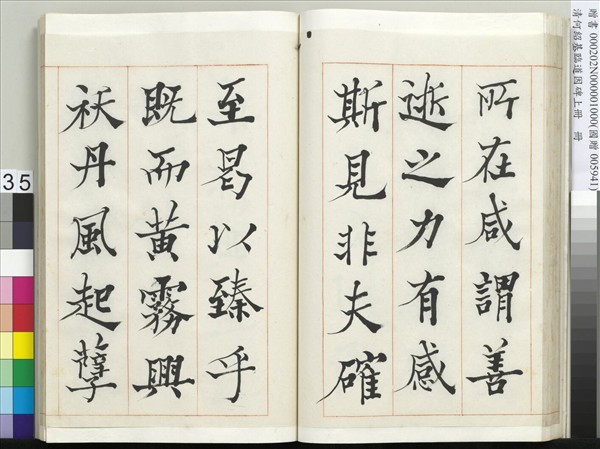 贈書 000202N000001000(國贈 005941)
清何紹基臨道因碑上冊 冊
所在咸謂善
逝之力有感
斯見非夫確
至曷以臻乎
既而黃霧興
祅丹風起孽
35